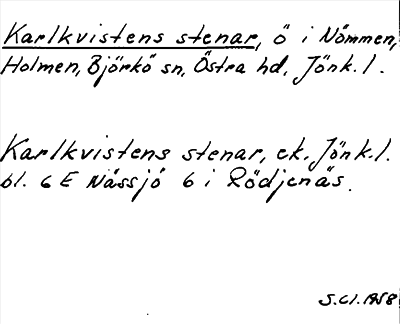 Karlkvistens stenar, ö i Nömmen,
Holmen, Björkö sn, Östra hd, Jönk. l.
Karlkvistens stenar, ek. Jönk. l.
bl. 6 E Nässjö 6 i Rödjenäs.
S. Cl. 1958